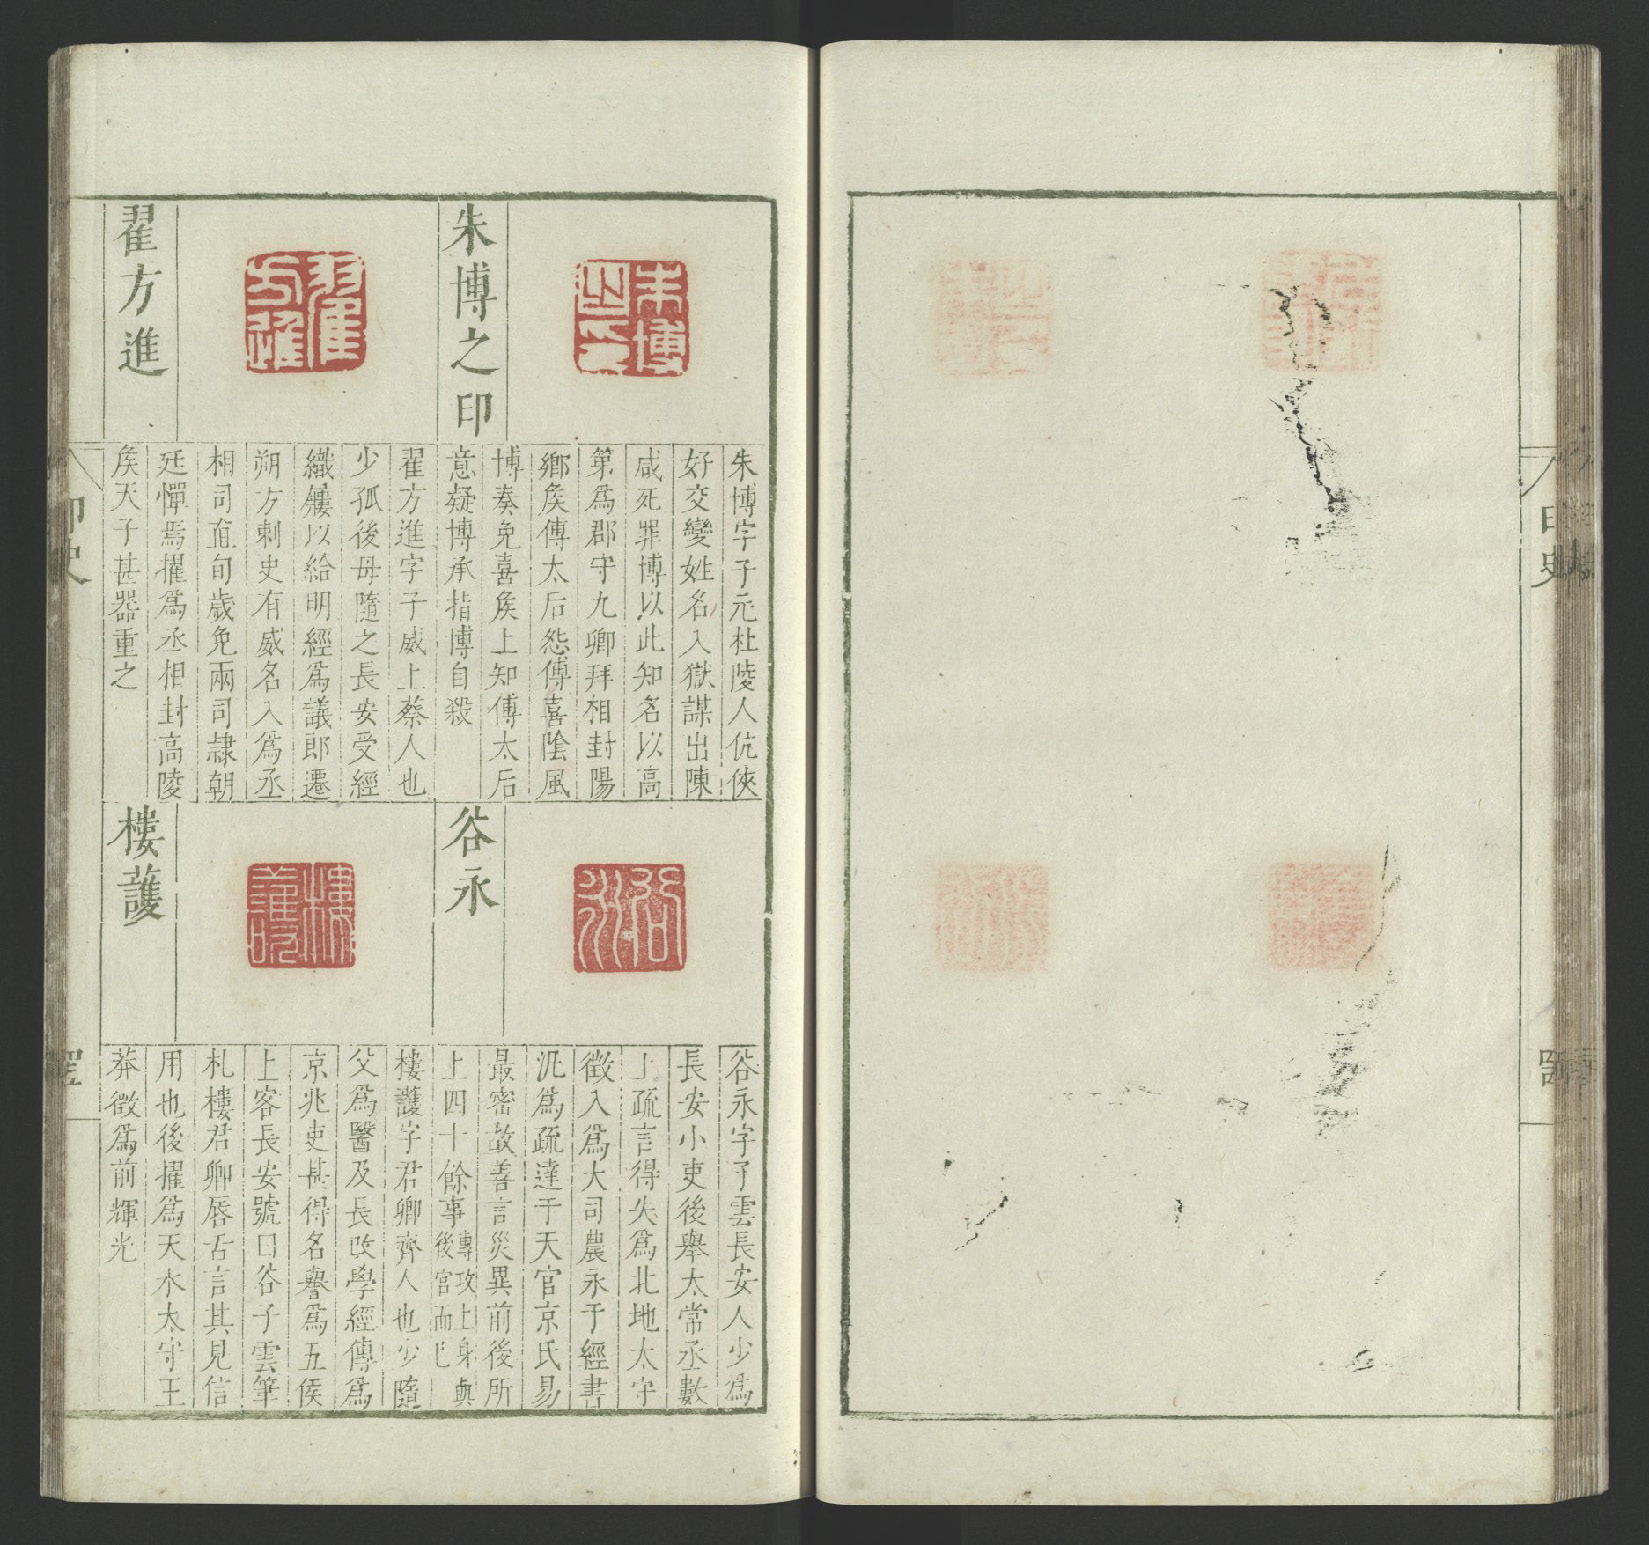 朱博之印
朱博字子元杜陵人伉俠
好交變姓名入獄謀出陳
咸死罪博以此知名以高
第爲郡守九卿拜相封陽
鄉矦傅太后怨傅喜陰風
博奏免喜矦上知傅太后
意疑博承指博自殺
翟方進
翟方進字子威上蔡人也
少孤後母隨之長安受經
織屨以給明經爲議郎遷
朔方刺史有威名入爲丞
相司直旬歲免兩司隷朝
廷憚焉擢爲丞相封高陵
矦天子甚器重之
谷永
谷永字子雲長安人少爲
長安小吏後舉太常丞數
上疏言得失爲北地太守
徵入爲大司農永于經書
汎爲疏達于天官京氏易
最密故善言災異前後所
上四十餘事專攻上身與
後宮而已
樓護
樓護字君卿齊人也少隨
父爲醫及長改學經傳爲
京兆吏甚得名譽爲五侯
上客長安號曰谷子雲筆
札樓君卿唇舌言其見信
用也後擢爲天水太守王
莽徵爲前輝光
印史